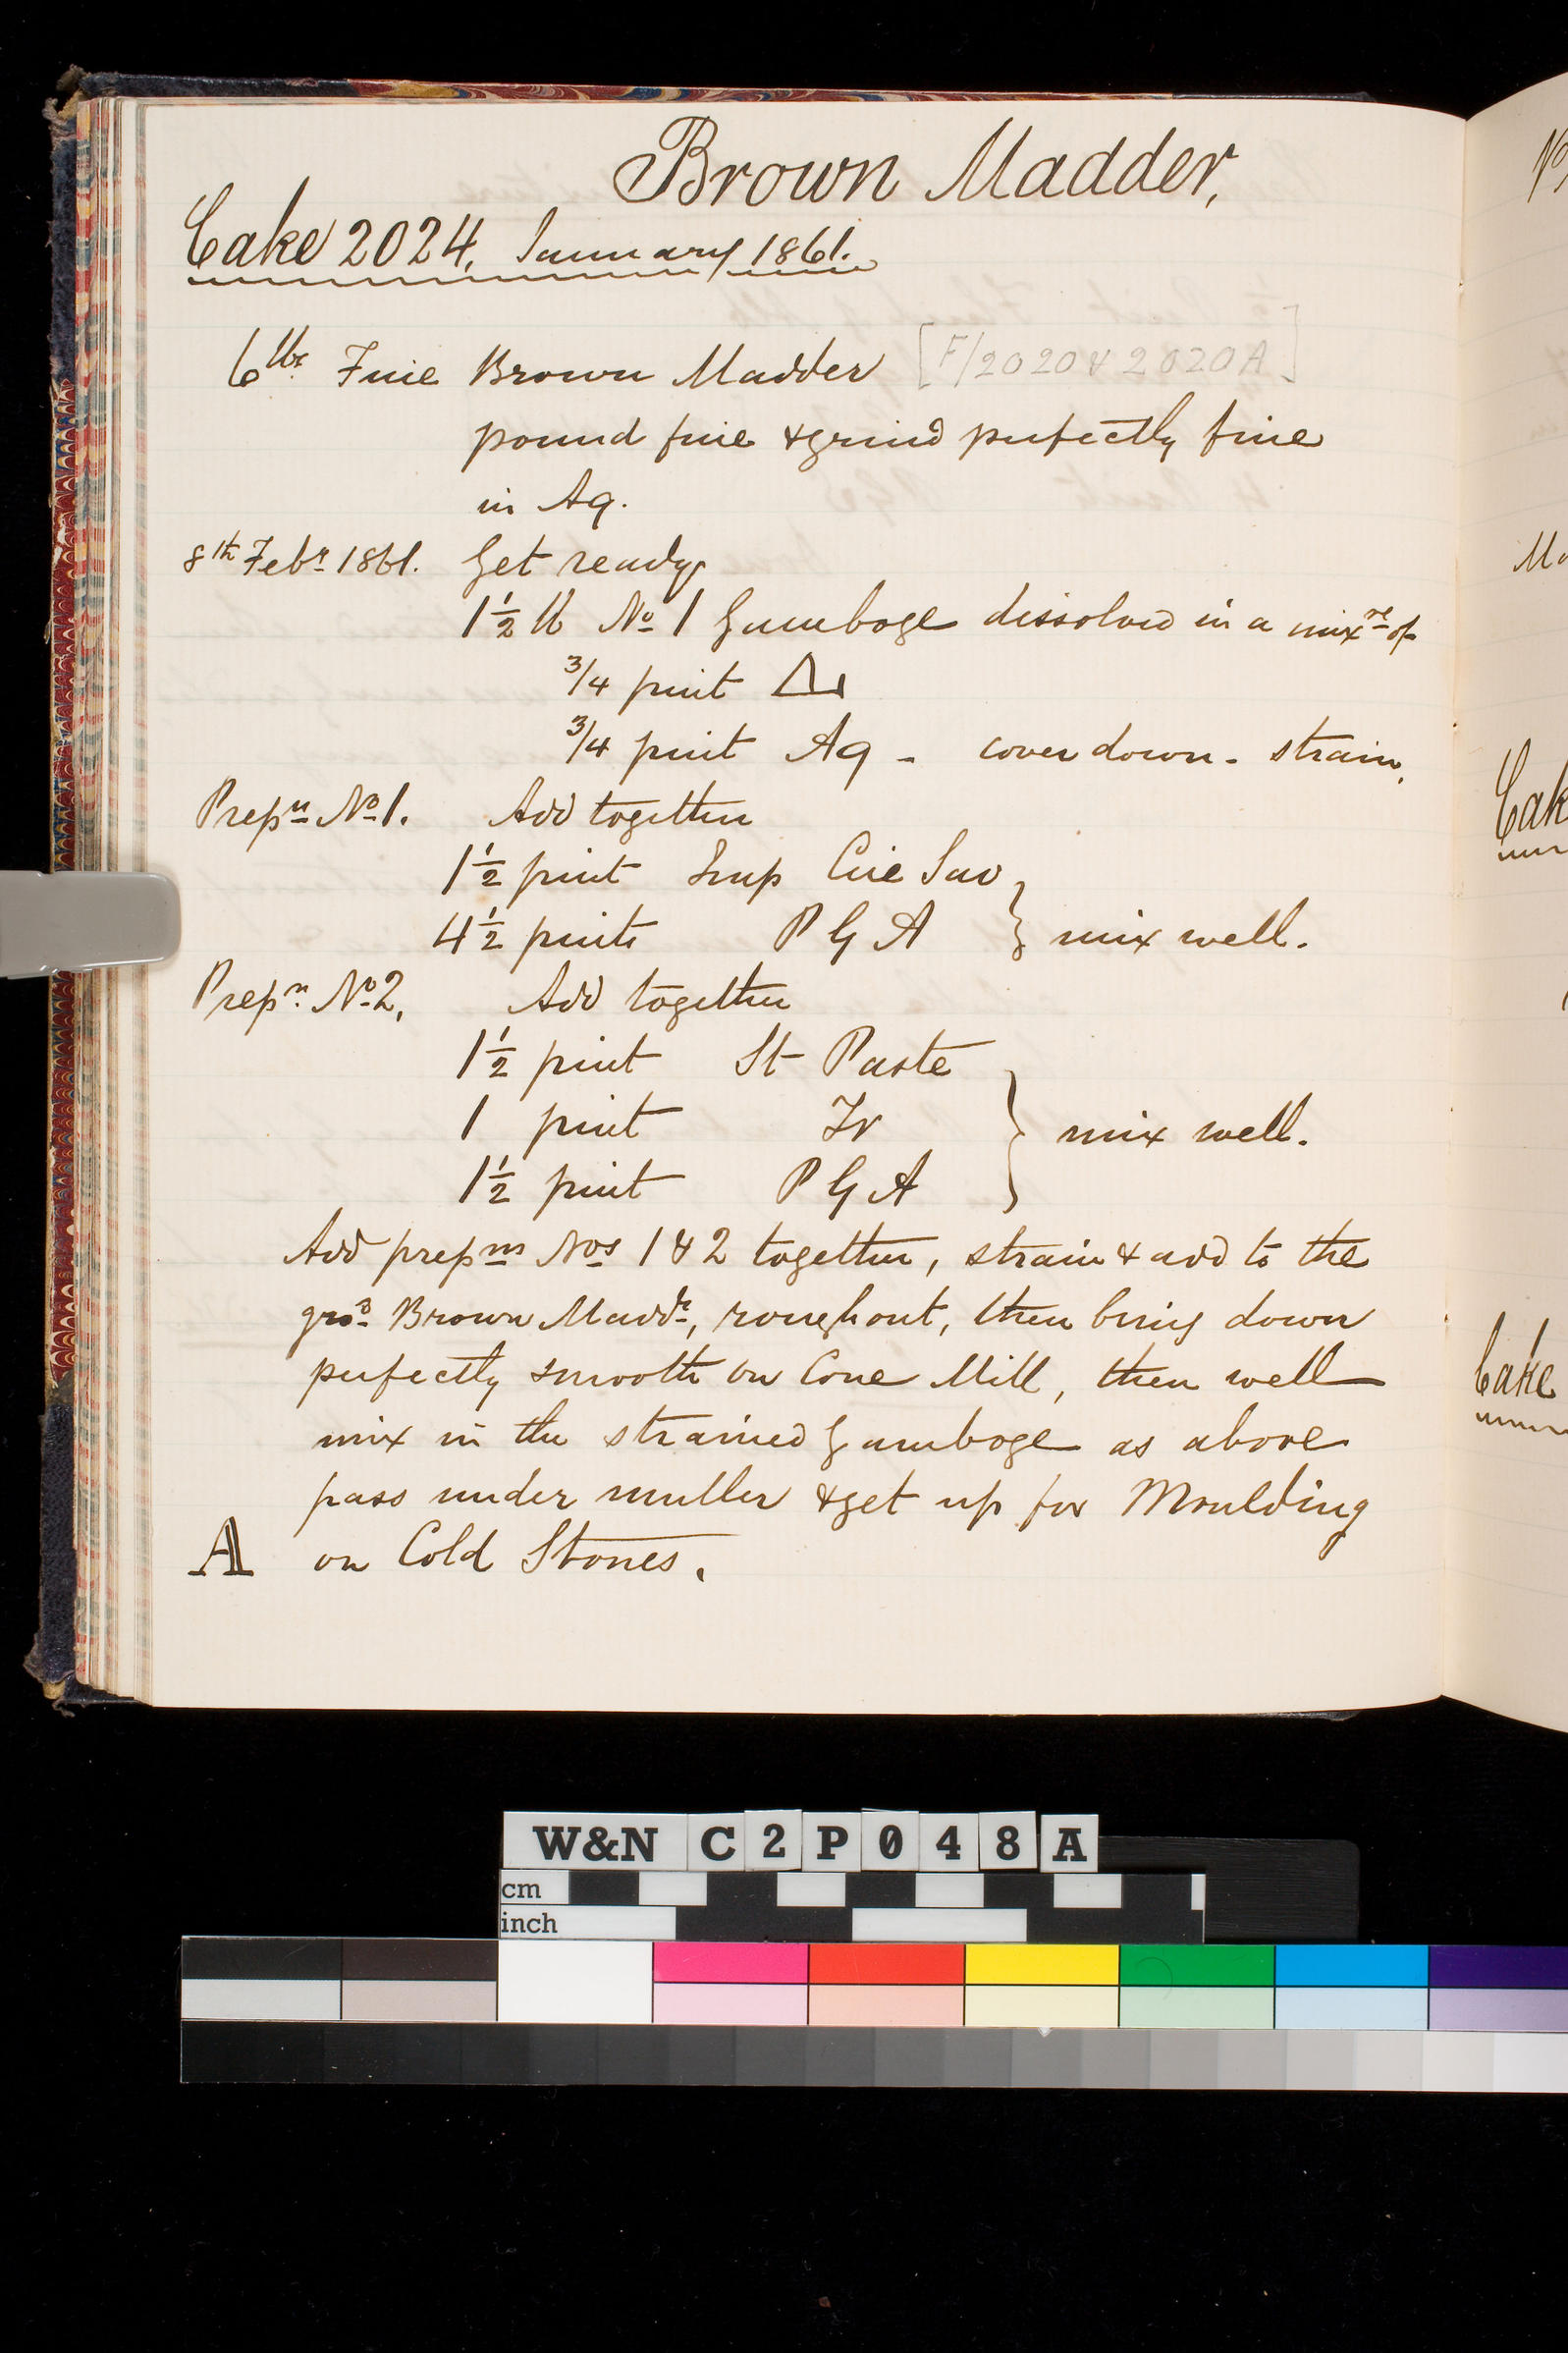 Brown Madder,
Cake 2024, January 1861.
6 lbs Fine Brown Madder [F/2020 & 2020A]
pound fine & grind perfectly fine
in Aq.
8th Febr 1861. Get ready
1½ lb No 1 Gamboge dissolved in a mixre of
3/4 pint
3/4 pint Aq - cover down - strain,
Prepn No 1. Add together
1½ pint Sup
4½ pints P G A } mix well.
Prepn No 2, Add together
1½ pint St Paste
1 pint Tr } mix well.
1½ pint P G A
Add prepns Nos 1 & 2 together, strain & add to the
grod Brown Maddr, rough out, then bring down
perfectly smooth on Cone Mill, then well
mix in the strained Gamboge as above
pass under muller & get up for Moulding
A on Cold Stones.
Cake
W&N C2P048A
cm
inch